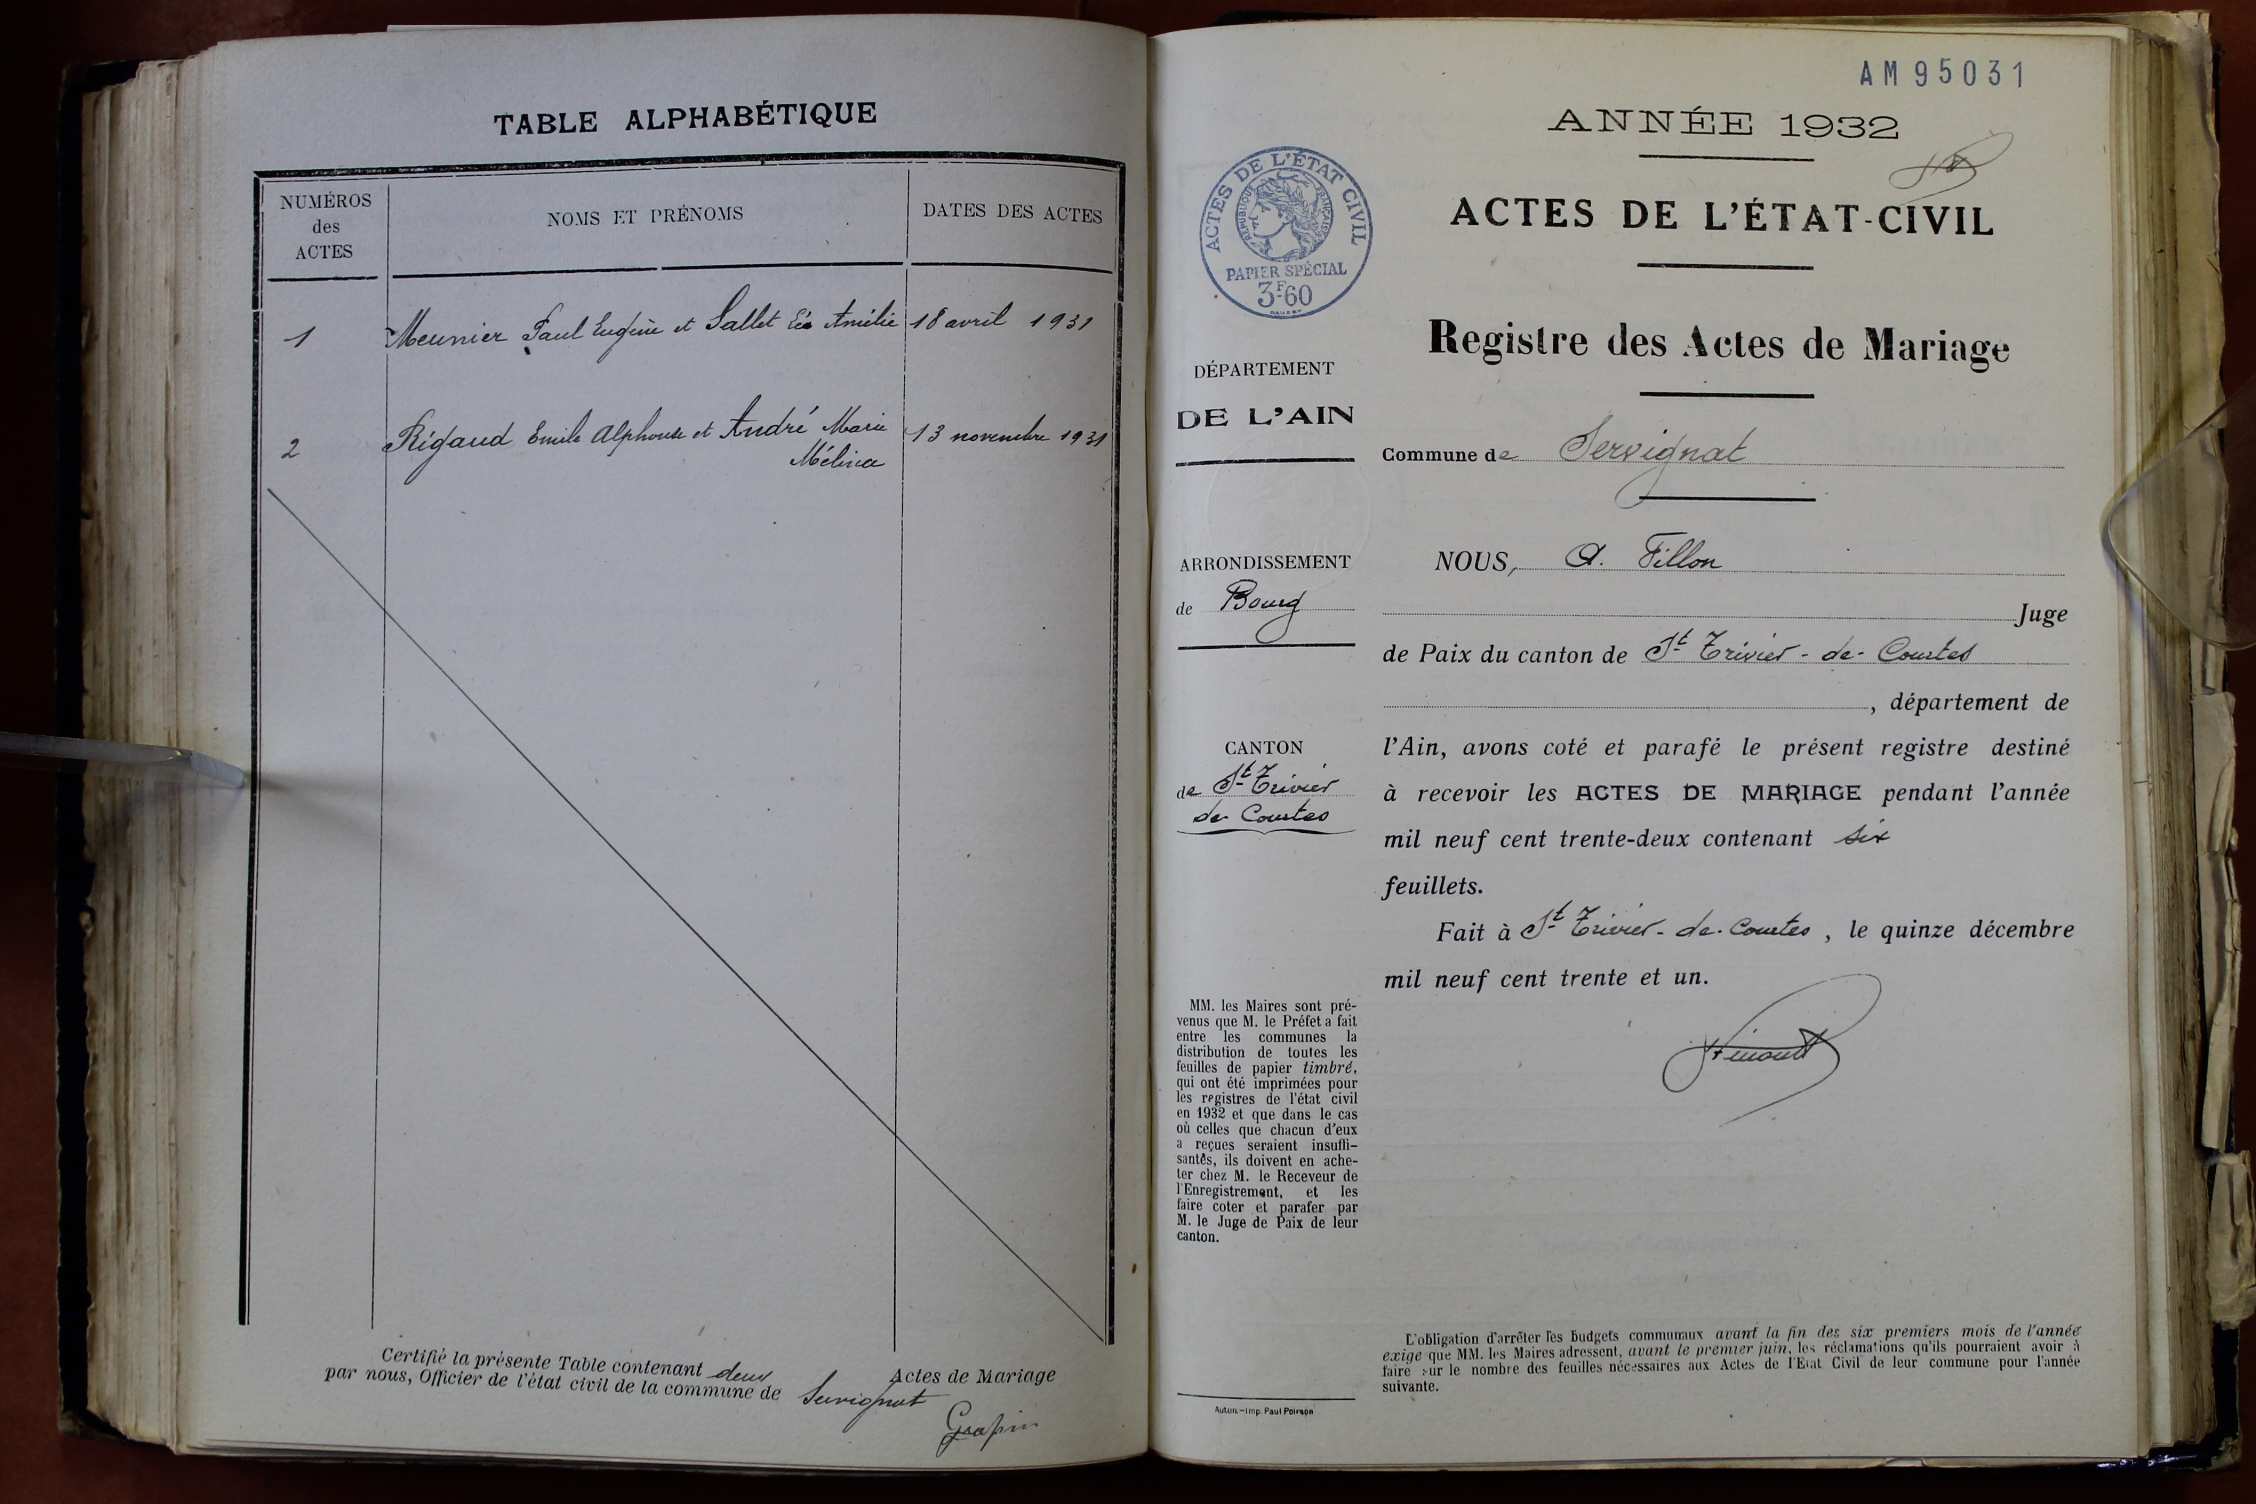 TABLE ALPHABÉTIQUE
NUMÉROS
des
ACTES
NOMS ET PRÉNOMS
DATES DES ACTES
1
Meunier Paul Eugène et Sallet Léa Amélie
18 avril 1931
2
Rigaud Emile Alphonse et André Marie
Mélina
13 novembre 1931
Certifié la présente Table contenant deux Actes de Mariage
par nous, Officier de l'état civil de la commune de Servignat
Grapin
AM95031
ANNÉE 1932
ACTES DE L'ÉTAT CIVIL
RÉPUBLIQUE FRANÇAISE
PAPIER SPÉCIAL
3F60
ACTES DE L'ÉTAT-CIVIL
Registre des Actes de Mariage
DÉPARTEMENT
DE L'AIN
Commune de Servignat
ARRONDISSEMENT
de Bourg
CANTON
de St Trivier
de Courtes
NOUS, A. Fillon
Juge
de Paix du canton de St Trivier-de-Courtes
, département de
l'Ain, avons coté et parafé le présent registre destiné
à recevoir les ACTES DE MARIAGE pendant l'année
mil neuf cent trente-deux contenant six
feuillets.
Fait à St Trivier-de-Courtes, le quinze décembre
mil neuf cent trente et un.
MM. les Maires sont pré-
venus que M. le Préfet a fait
entre les communes la
distribution de toutes les
feuilles de papier timbré,
qui ont été imprimées pour
les registres de l'état civil
en 1932 et que dans le cas
où celles que chacun d'eux
a reçues seraient insuffi-
santes, ils doivent en ache-
ter chez M. le Receveur de
l'Enregistrement, et les
faire coter et parafer par
M. le Juge de Paix de leur
canton.
L'obligation d'arrêter les budgets communaux avant la fin des six premiers mois de l'année
exige que MM. les Maires adressent, avant le premier juin, les réclamations qu'ils pourraient avoir à
faire sur le nombre des feuilles nécessaires aux Actes de l'Etat Civil de leur commune pour l'année
suivante.
Autun.—Imp. Paul Poirson